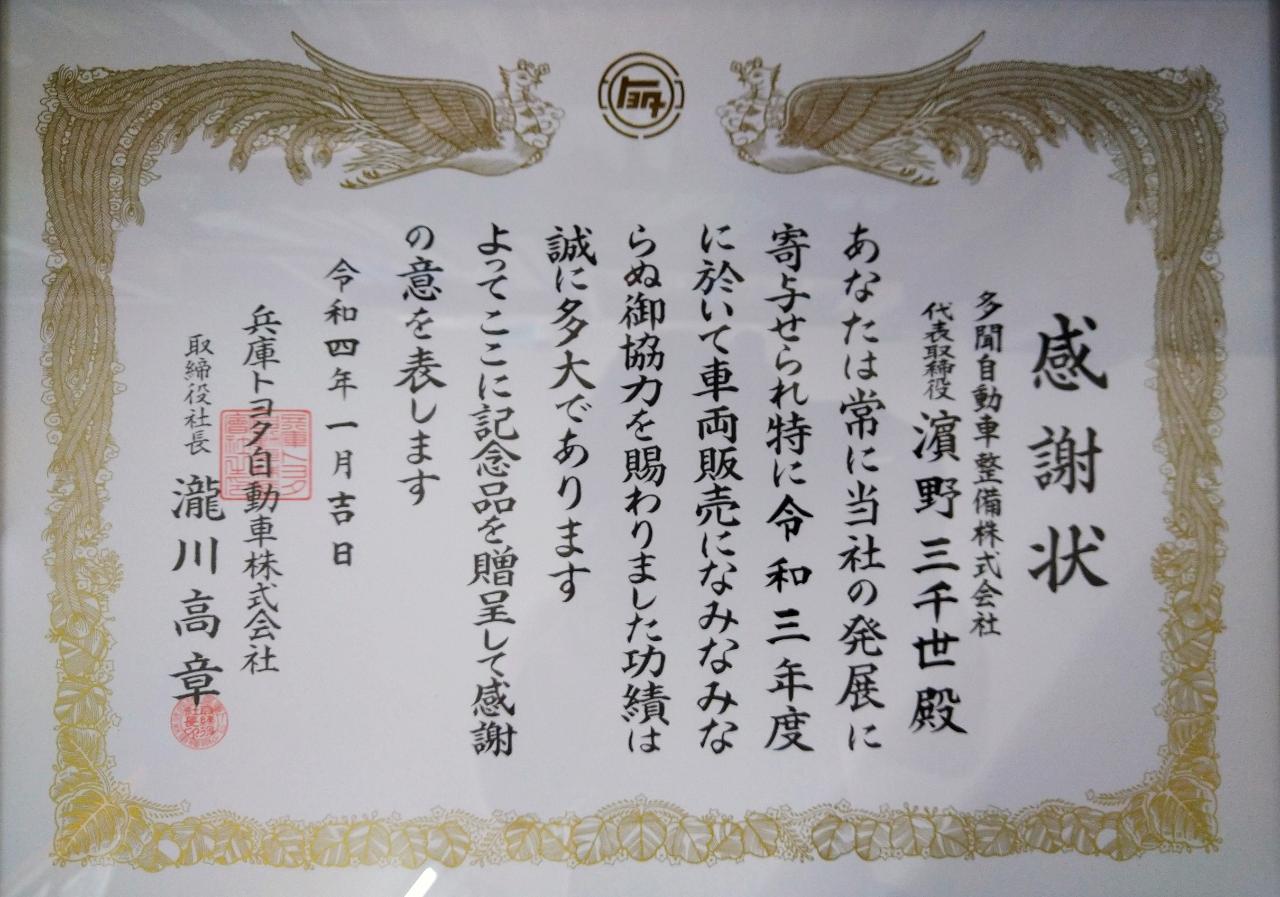 トヨタ
感謝状
多聞自動車整備株式会社
代表取締役 濵野三千世殿
あなたは常に当社の発展に
寄与せられ特に令和三年度
に於いて車両販売になみなみな
らぬ御協力を賜わりました功績は
誠に多大であります
よってここに記念品を贈呈して感謝
の意を表します
令和四年一月吉日
兵庫トヨタ自動車株式会社
取締役社長 瀧川高章